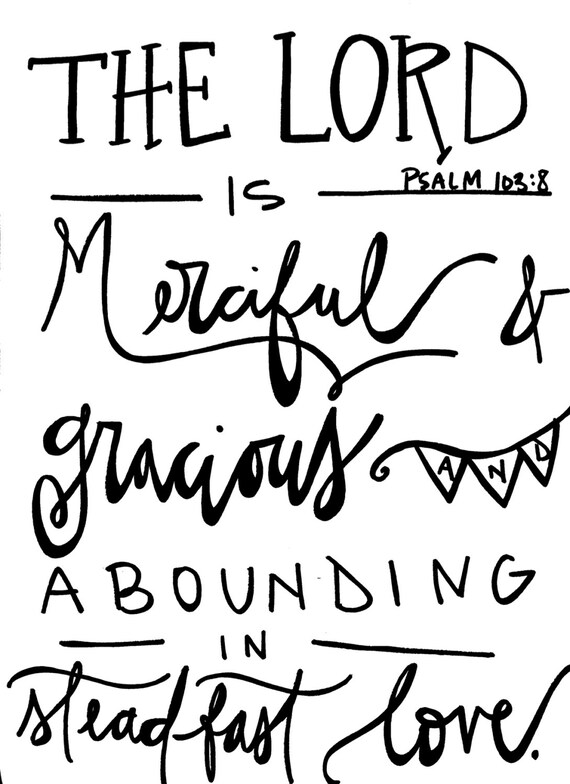 THE LORD
IS
PSALM 103:8
Merciful &
gracious AND
ABOUNDING
IN
steadfast love.